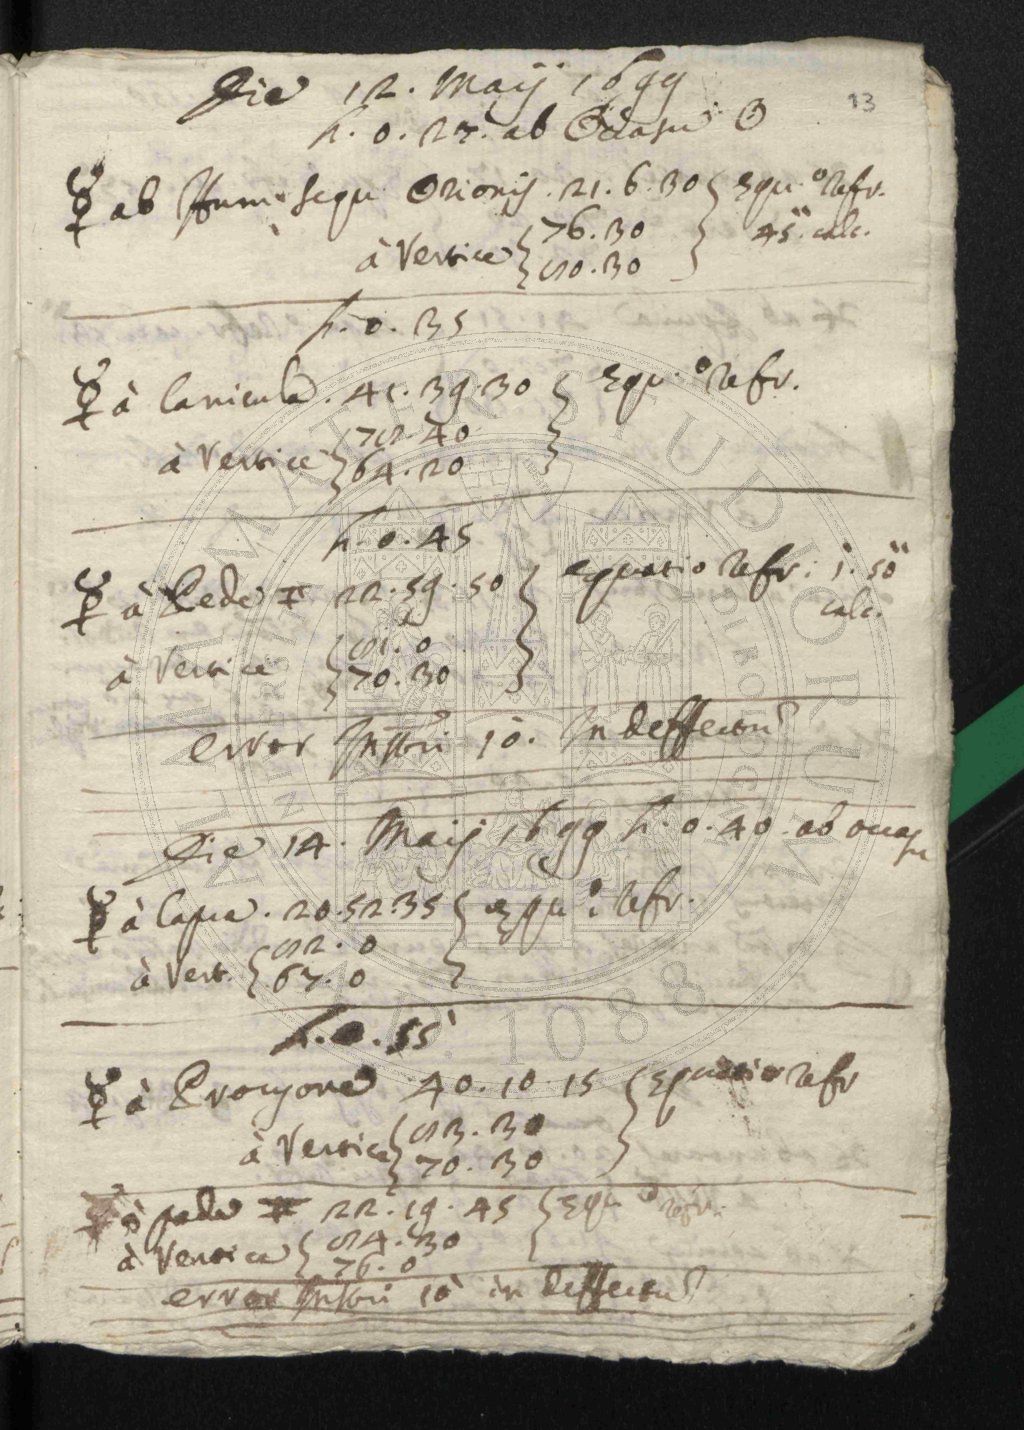 13
Die 12. Maij 1699
h. 0. 27. ab Occasu ☉
☿ ab Hum. sequ. Orionis. 21. 6. 30 } Equ. refr.
à Vertice { 76. 30 } 45'' calc.
{ 80. 30
h. 0. 35
☿ à Canicula. 41. 39. 30 } Equ. refr.
à Vertice { 78. 40
{ 64. 20
h. 0. 45
☿ à Pede ♊ 22. 59. 50 } equatio refr: 1. 50''
calc.
à Vertice { 81. 0
{ 70. 30
error Instri 10. In deffectu
Die 14. Maij 1699 h. 0. 40. ab occasu
☿ à Capra. 20. 52. 35 } equ: refr.
à Vert. { 82. 0
{ 67. 0
h. 0. 55
☿ à Procyone 40. 10. 15 { Equatio refr
à Vertice { 83. 30
{ 70. 30
☿ à pede ♊ 22. 19. 45 { Equ refr.
à Vertice { 84. 30
{ 76. 0
error Instri 10 in deffectu
ALMA MATER STUDIORUM
A.D. 1088